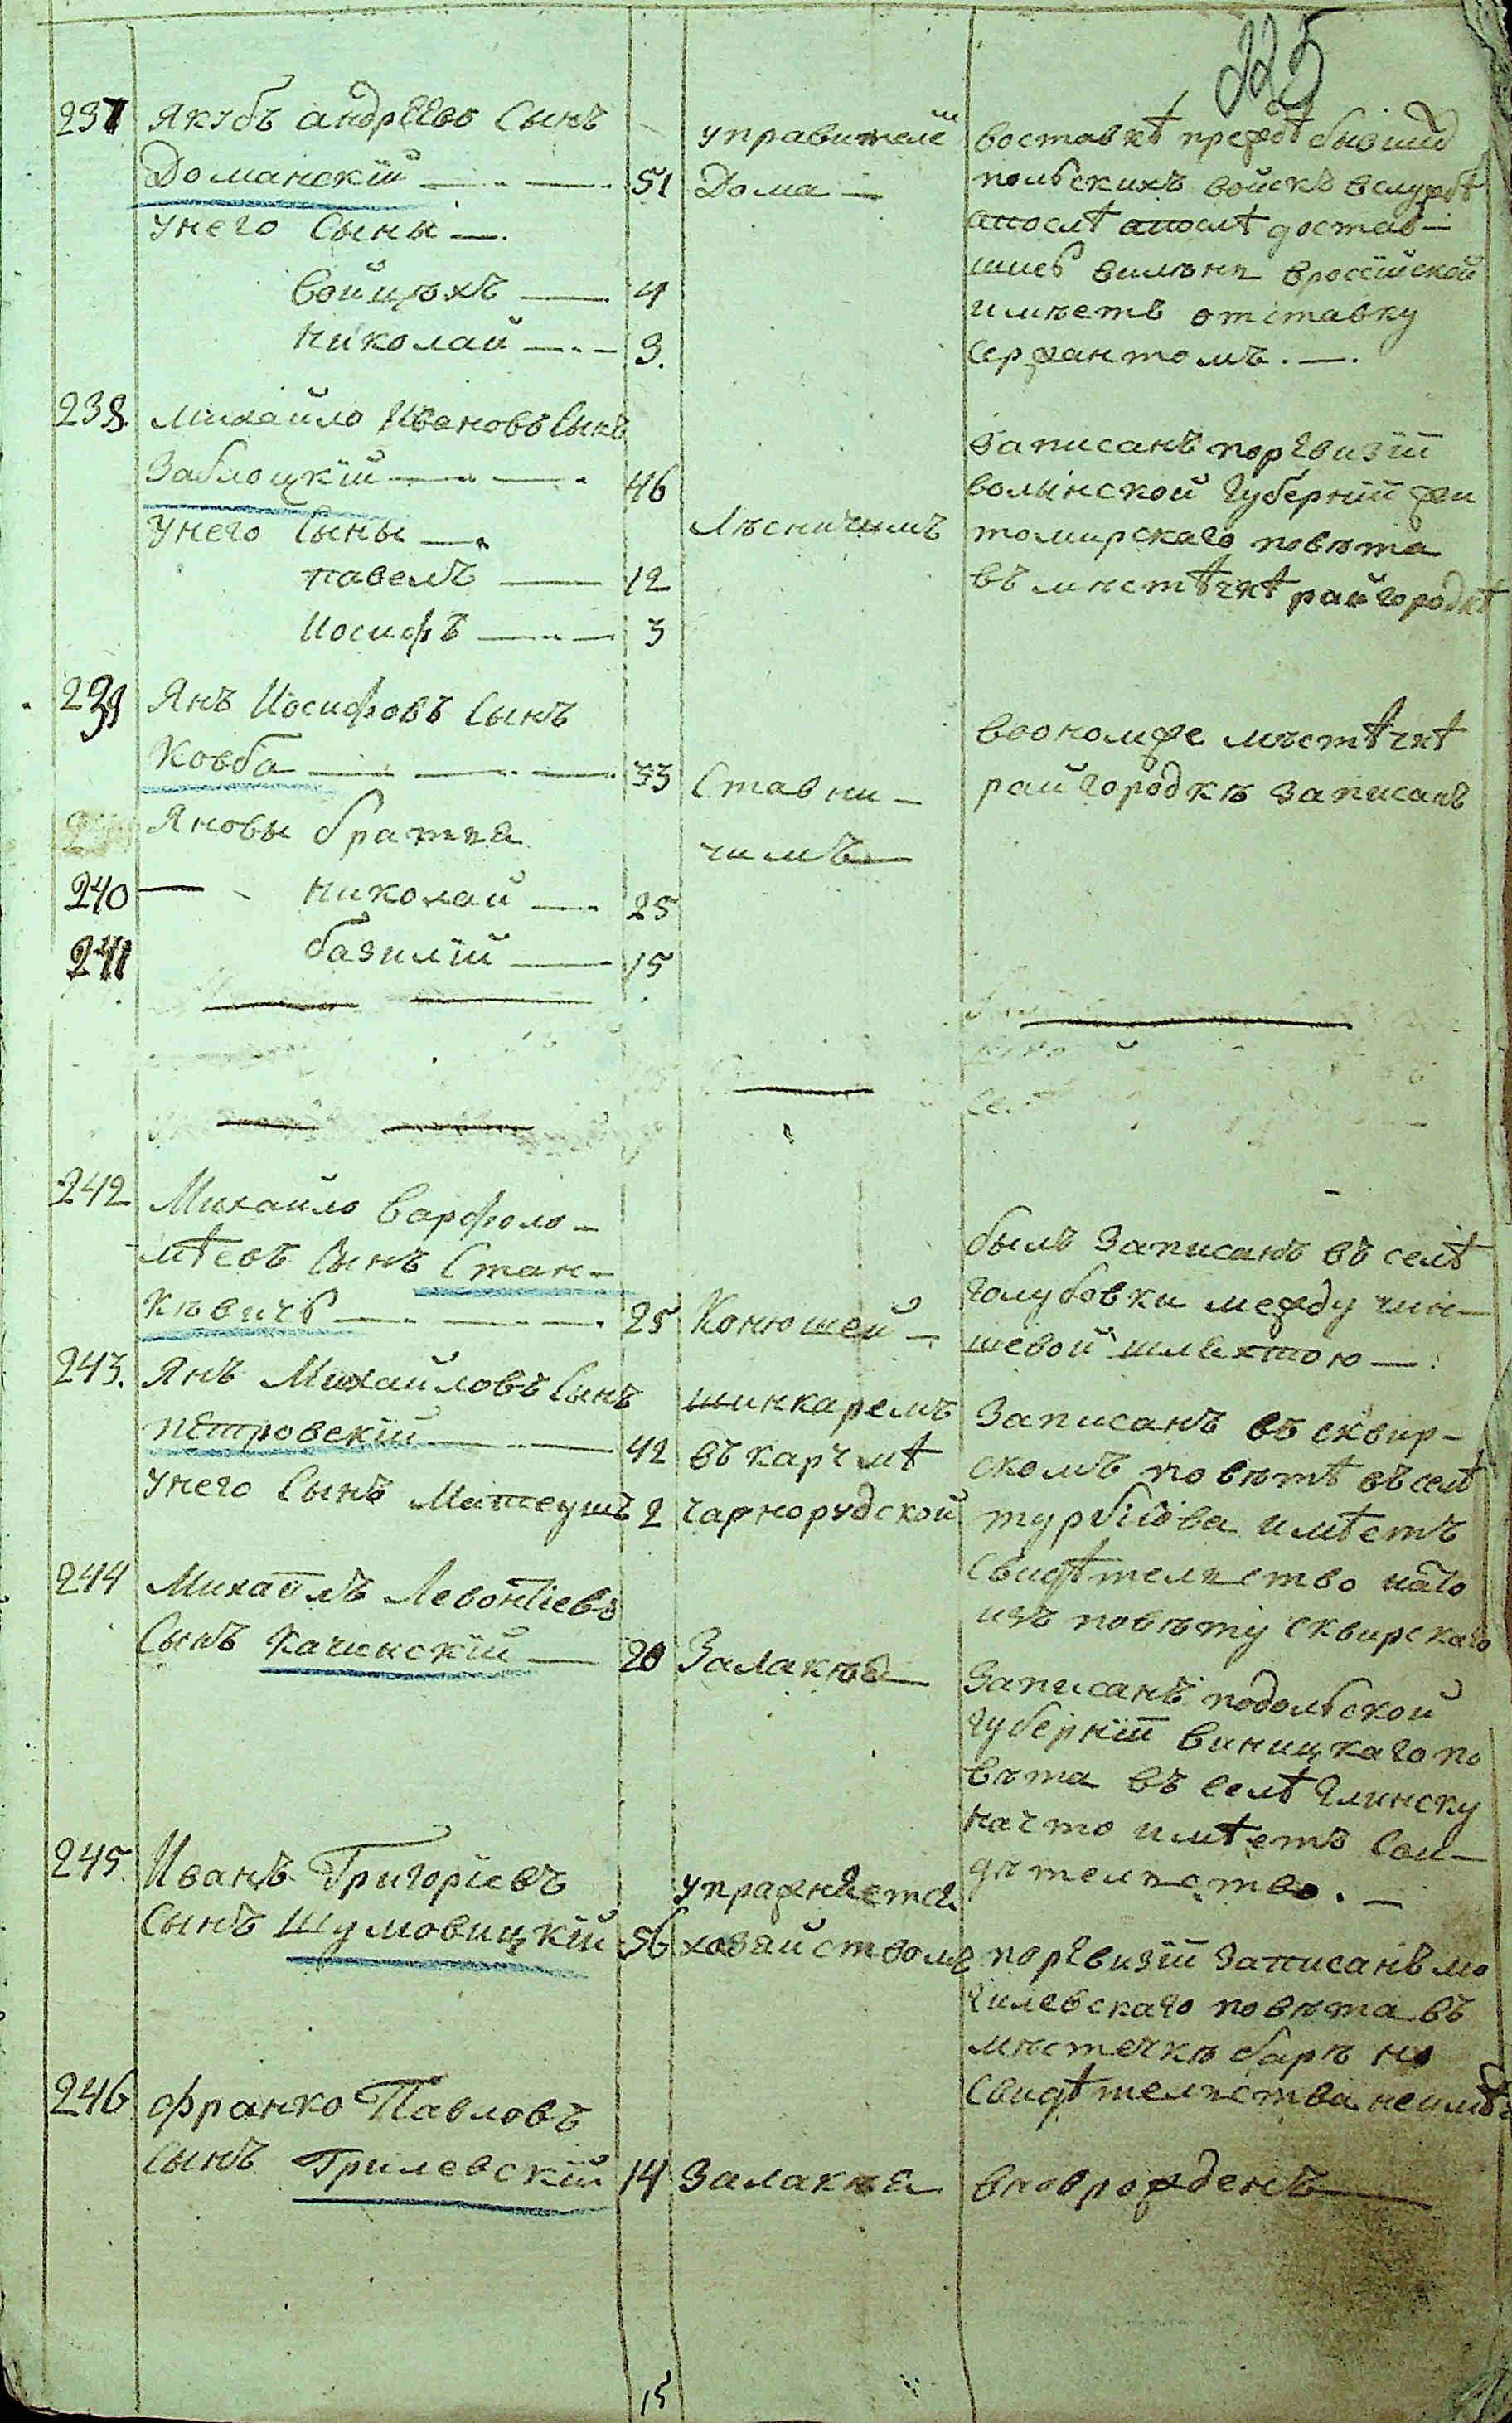 225
237 Якубъ андрѣевъ Сынъ
Доманскїй 51
управителемъ
Дома
воставкѣ прежде бывших
польскихъ войскъ вслужбѣ
апослѣ апослѣ достав-
шись вилънѣ вроссїйской
имѣетъ отставку
сержантомъ.
унего Сыны
войцѣхъ 4
николай 3.
238 Михайло Ивановъ Сынъ
Заблоцкїй 46
Лѣсничимъ
записанъ поревизїи
волынской Губернїи жи
томирскаго повѣта
въ мѣстѣчкѣ райгородкѣ
унего Сыны
павелъ 12
Иосифъ 3
239 Янъ Иосифовъ Сынъ
Ковба 33
Ставни-
чимъ
воономже мѣстѣчкѣ
райгородкѣ записанъ
Яновы братья
240 николай 25
241 базилїй 15
242 Михайло варфоло-
мѣевъ Сынъ Стан-
кѣвичъ 25
Конюшей
былъ Записанъ въ селѣ
голубовки между чин-
шевой шляхтою
243. Янъ Михайловъ Сынъ
петровскїй 42
унего Сынъ Матеушъ 2
шинкаремъ
въ карчмѣ
чарнорудской
Записанъ въ сквир-
скомъ повѣтѣ въ селѣ
турбїйова имѣетъ
Свидѣтелство
изъ повѣту сквирскаго
244 Михайлъ Левонтїевъ
Сынъ Качинскїй 20
Залакѣя
Записанъ подольской
Губернїи виницкаго по
вѣта въ селѣ Глинску
начто имѣетъ Сви-
дѣтелство.
245. Иванъ Григорїевъ
Сынъ Шумовицкїй 56
упражняется
хозяйствомъ
поревизїи записанъ мо
гилевскаго повѣта въ
мѣстечкѣ барѣ но
Свидѣтелства неимѣ
246 франко Павловъ
Сынъ Грилевскїй 14
Залакѣя
вноврожденъ
15